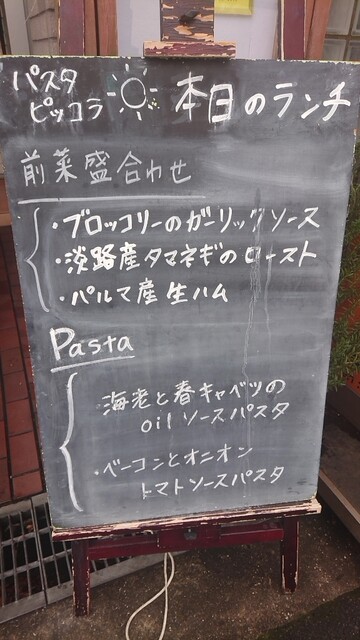 パスタ
ピッコラ
本日のランチ
前菜盛合わせ
・ブロッコリーのガーリックソース
・淡路産タマネギのロースト
・パルマ産生ハム
Pasta
海老と春キャベツの
oilソースパスタ
・ベーコンとオニオン
トマトソースパスタ